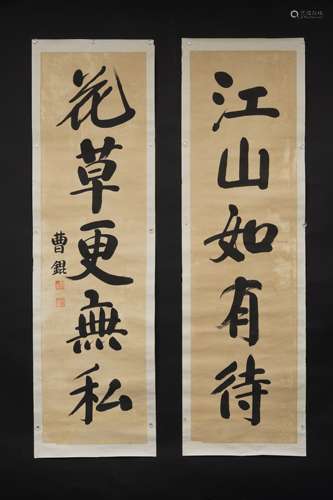 江山如有待
花草更無私
曹錕